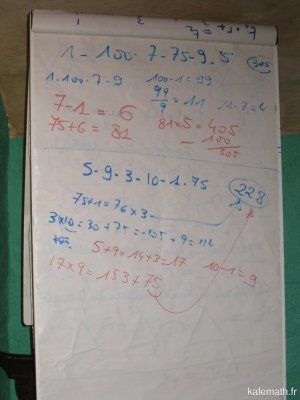 1 - 100 - 7 - 75 - 9 - 5 305
1 - 100 - 7 - 9 100 - 1 = 99
99/9 = 11 11 - 7 = 4
7 - 1 = 6 81 x 5 = 405
75 + 6 = 81 - 100
305
5 - 9 - 3 - 10 - 1 - 75 228
75 + 1 = 76 x 3
3 x 10 = 30 + 75 = 105 + 9 = 114
5 + 9 = 14 + 3 = 17 10 - 1 = 9
17 x 9 = 153 + 75
kafemath.fr